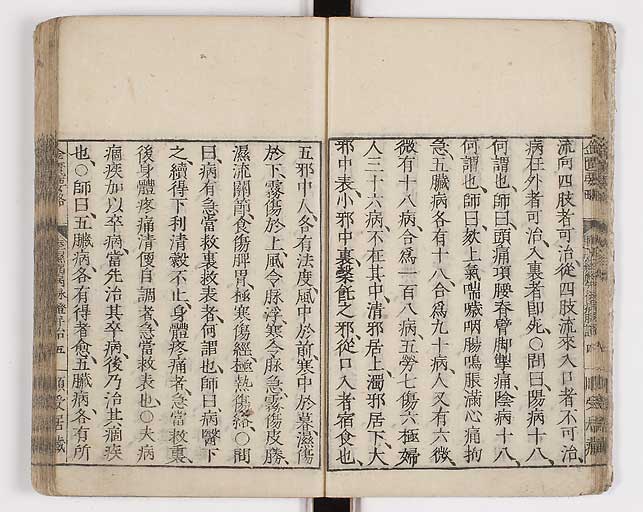 流向四肢者可治、從四肢流來入口者不可治、
病在外者可治、入裏者即死、○問曰、陽病十八、
何謂也、師曰、頭痛項腰脊臂脚掣痛、陰病十八、
何謂也、師曰、欬上氣喘噦咽腸鳴脹滿心痛拘
急、五臟病各有十八、合爲九十病、人又有六微、
微有十八病、合爲一百八病、五勞七傷六極婦
人三十六病、不在其中、清邪居上、濁邪居下、大
邪中表、小邪中裏、䅽飪之邪、從口入者、宿食也、
五邪中人、各有法度、風中於前、寒中於暮、濕傷
於下、霧傷於上、風令脉浮、寒令脉急、霧傷皮腠、
濕流關節、食傷脾胃、極寒傷經、極熱傷絡、○問
曰、病有急當救裏救表者、何謂也、師曰、病醫下
之、續得下利清穀不止、身體疼痛者、急當救裏、
後身體疼痛、清便自調者、急當救表也、○夫病
痼疾加以卒病、當先治其卒病、後乃治其痼疾
也、○師曰、五臟病各有得者愈、五臟病各有所